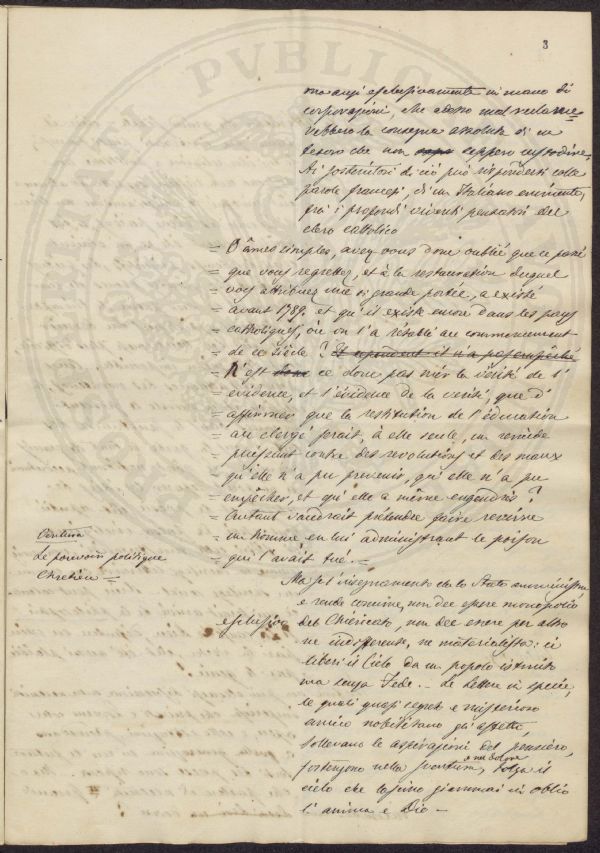 3
ma anzi esclusivamente in mano di
corporazioni, che adesso mal reclame=
rebbero la consegna assoluta di un
tesoro che non seppero custodire.
Ai sostenitori di ciò può rispondersi colle
parole francesi, di un Italiano eminente,
frà i profondi viventi pensatori del
clero cattolico
= O âmes simples, avez vous donc oublié que ce passé
= que vous regrettez, et à la restauration duquel
= vous attribuez une si grande portée, a existé
= avant 1789. et qu'il existe encore dans les pays
= catholiques, où on l'a rétabli au commencement
= de ce siècle? Et cependant il n'a pas empêché
= N'est donc ce donc pas nier la vérité de l'
= évidence, et l'évidence de la verité, que d'
= affirmer que la restitution de l'éducation
= au clergé serait, à elle seule, un remède
= puissant contre des revolutions et des maux
= qu'elle n'a pu prevenir, qu'elle n'a pu
= empêcher, et qu'elle a même engendrés?
= Autant vaudrait prétendre faire revivre
= un homme en lui administrant le poison
= qui l'avait tué. —
Ventura
Le pouvoir politique
Chretien =
Ma se l'insegnamento che lo Stato amministra
e rende comune, non dee essere monopolio
esclusivo del Chiericato, non dee essere per altro
ne indifferente, ne materialista: ci
liberi il Cielo da un popolo istruito
ma senza Fede. — Le lettere in specie,
le quali quasi segreto e misterioso
amico nobilitano gli affetti,
sollevano le aspirazioni del pensiero,
sostengono nella sventura, e nel dolore, tolga il
cielo che lascino giammai in oblio
l'anima e Dio —